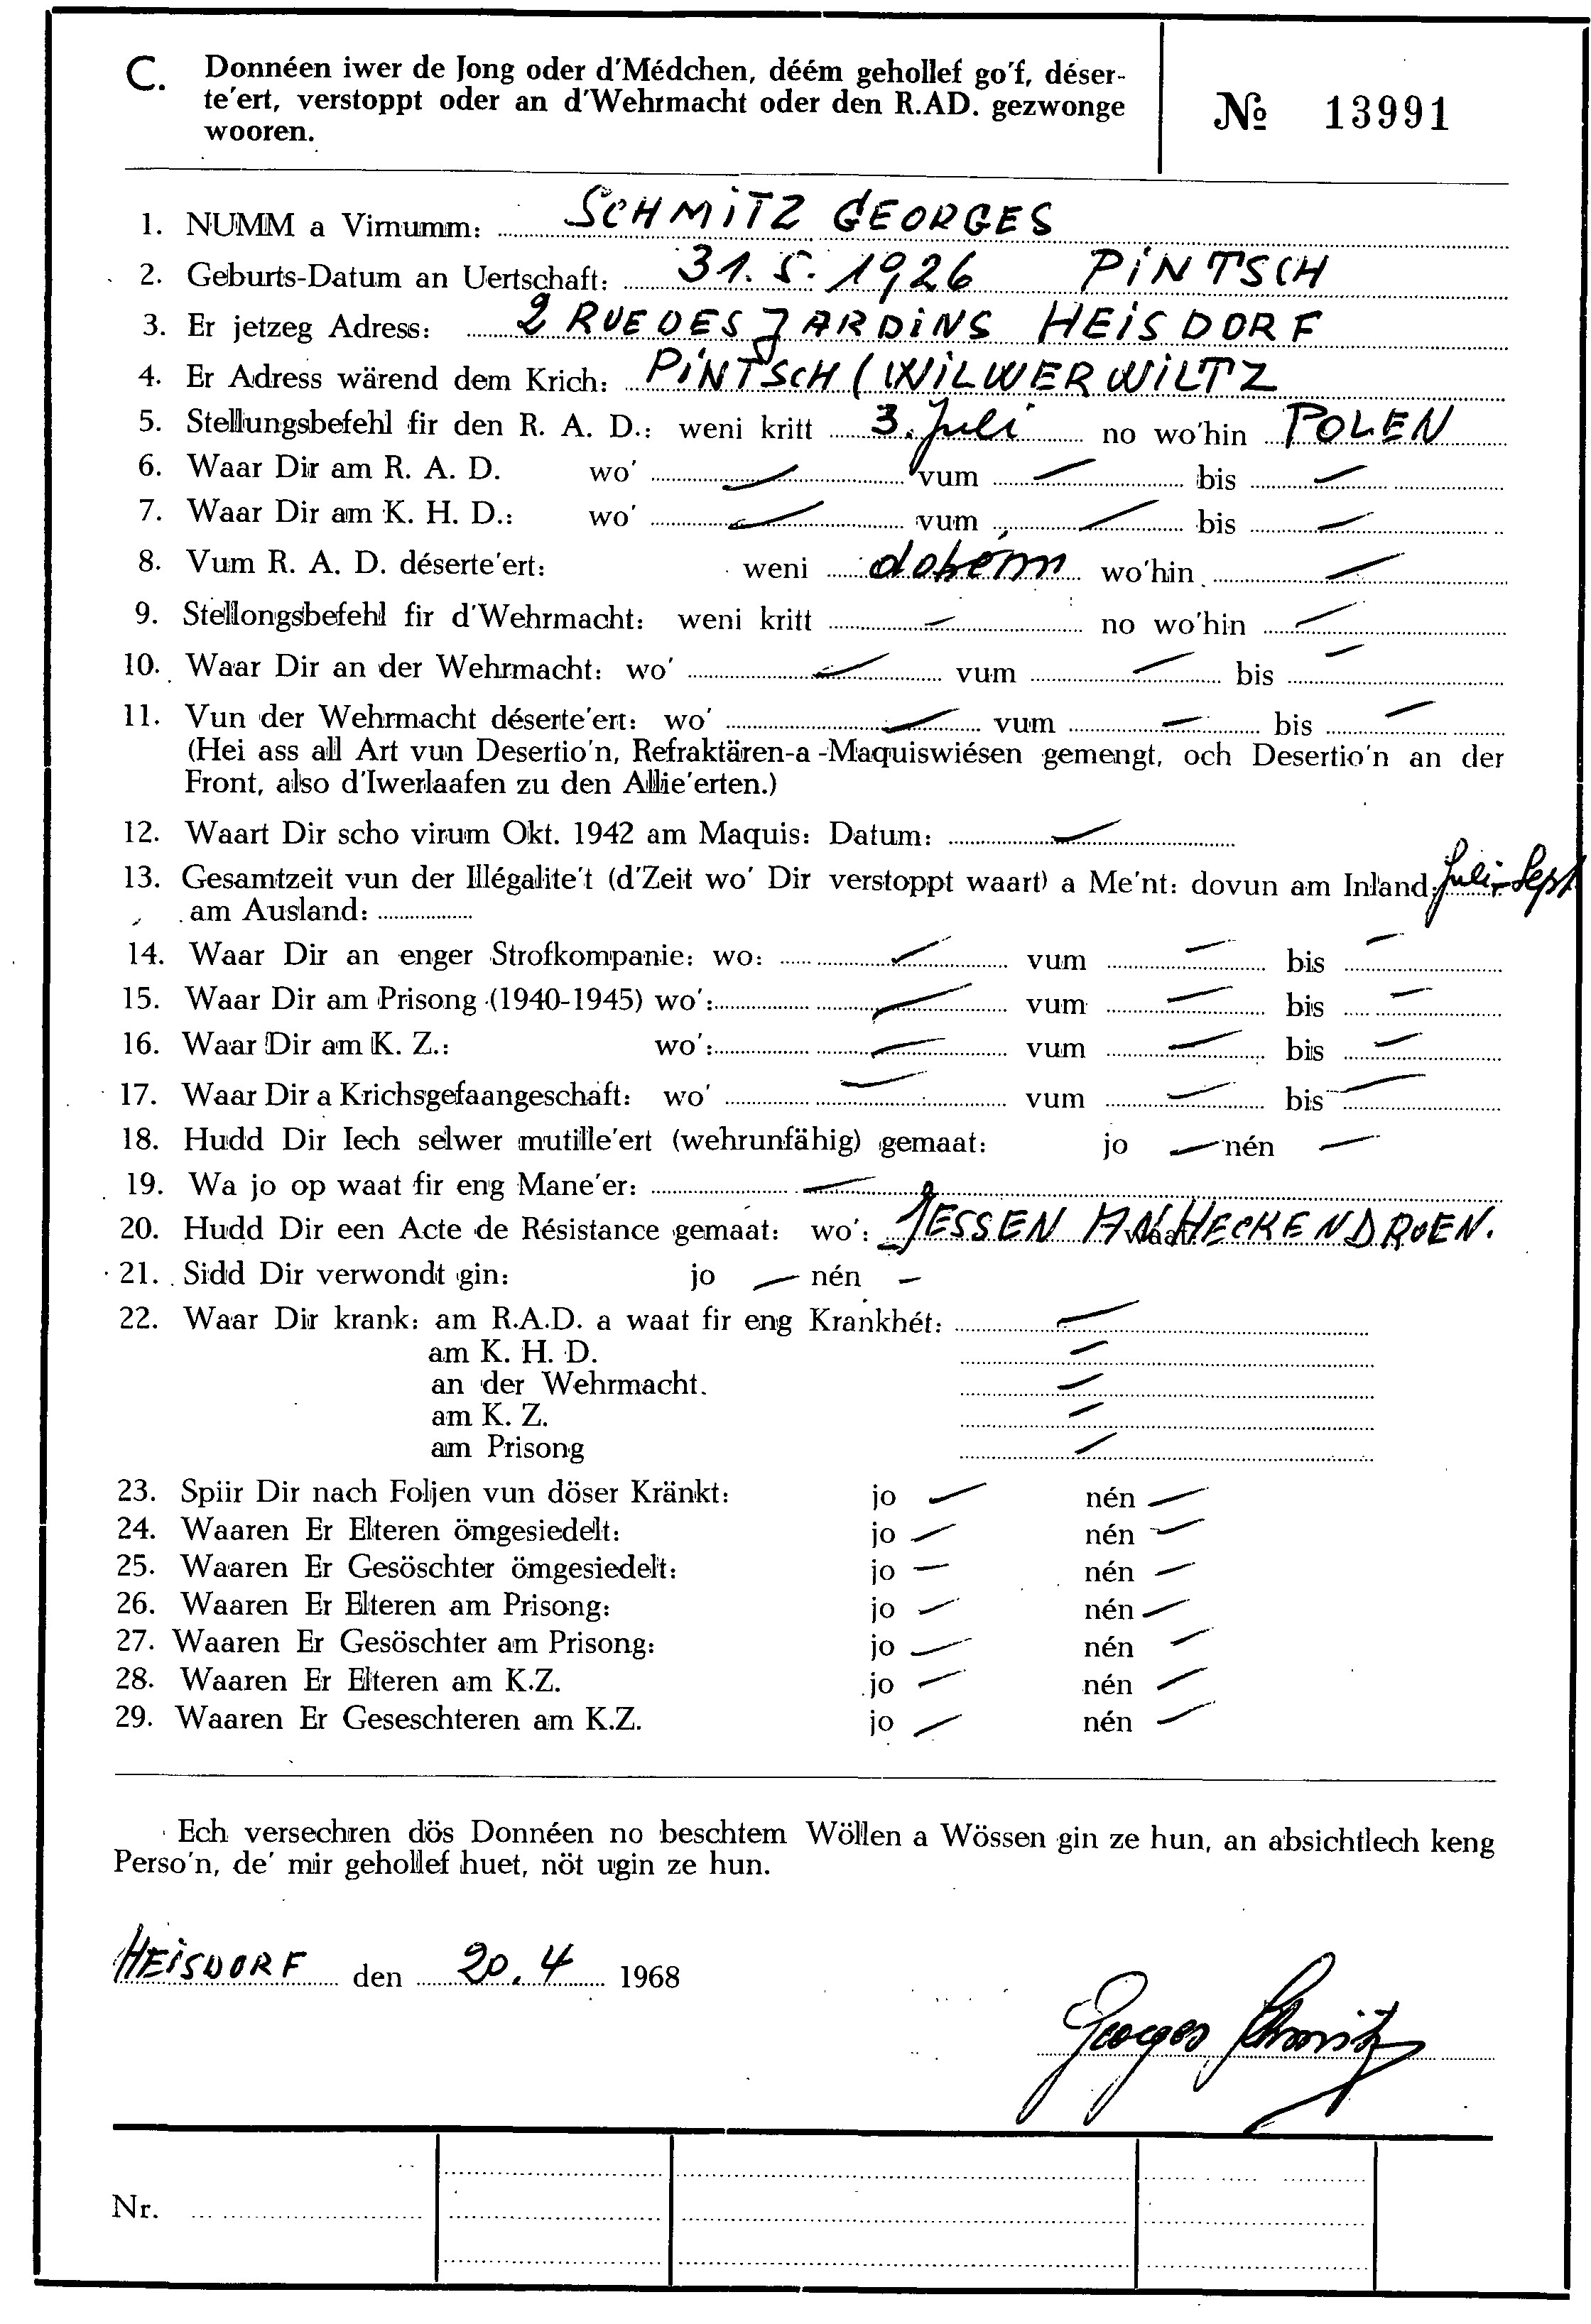 C. Donnéen iwer de Jong oder d'Médchen, déém gehollef go'f, déser-
te'ert, verstoppt oder an d'Wehrmacht oder den R.AD. gezwonge
wooren.
№ 13991
1. NUMM a Virnumm: SCHMITZ GEORGES
2. Geburts-Datum an Uertschaft: 31.5.1926 PINTSCH
3. Er jetzeg Adress: 2 RUE DES JARDINS HEISDORF
4. Er Adress wärend dem Krich: PINTSCH (WILWERWILTZ
5. Stellungsbefehl fir den R. A. D.: weni kritt 3. Juli no wo'hin POLEN
6. Waar Dir am R. A. D. wo' vum bis
7. Waar Dir am K. H. D.: wo' vum bis
8. Vum R. A. D. déserte'ert: weni dohém wo'hin
9. Stellongsbefehl fir d'Wehrmacht: weni kritt no wo'hin
10. Waar Dir an der Wehrmacht: wo' vum bis
11. Vun der Wehrmacht déserte'ert: wo' vum bis
(Hei ass all Art vun Desertio'n, Refraktären-a-Maquiswiésen gemengt, och Desertio'n an der
Front, also d'Iwerlaafen zu den Allie'erten.)
12. Waart Dir scho virum Okt. 1942 am Maquis: Datum:
13. Gesamtzeit vun der Illégalite't (d'Zeit wo' Dir verstoppt waart) a Me'nt: dovun am Inland: Juli-Sept
am Ausland:
14. Waar Dir an enger Strofkompanie: wo: vum bis
15. Waar Dir am Prisong (1940-1945) wo': vum bis
16. Waar Dir am K. Z.: wo': vum bis
17. Waar Dir a Krichsgefaangeschaft: wo' vum bis
18. Hudd Dir Iech selwer mutille'ert (wehrunfähig) gemaat: jo nén
19. Wa jo op waat fir eng Mane'er:
20. Hudd Dir een Acte de Résistance gemaat: wo': JESSEN AN waat: HECKENDROEN.
21. Sidd Dir verwondt gin: jo nén
22. Waar Dir krank: am R.A.D. a waat fir eng Krankhét:
am K. H. D.
an der Wehrmacht.
am K. Z.
am Prisong
23. Spiir Dir nach Foljen vun döser Kränkt: jo nén
24. Waaren Er Elteren ömgesiedelt: jo nén
25. Waaren Er Gesöschter ömgesiedelt: jo nén
26. Waaren Er Elteren am Prisong: jo nén
27. Waaren Er Gesöschter am Prisong: jo nén
28. Waaren Er Elteren am K.Z. jo nén
29. Waaren Er Geseschteren am K.Z. jo nén
Ech versechren dös Donnéen no beschtem Wöllen a Wössen gin ze hun, an absichtlech keng
Perso'n, de' mir gehollef huet, nöt ugin ze hun.
HEISDORF den 20.4 1968
Georges Schmitz
Nr.